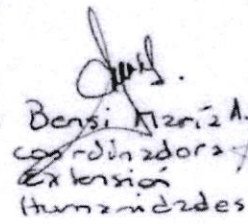 Bensi María A.
coordinadora
Extensión
Humanidades